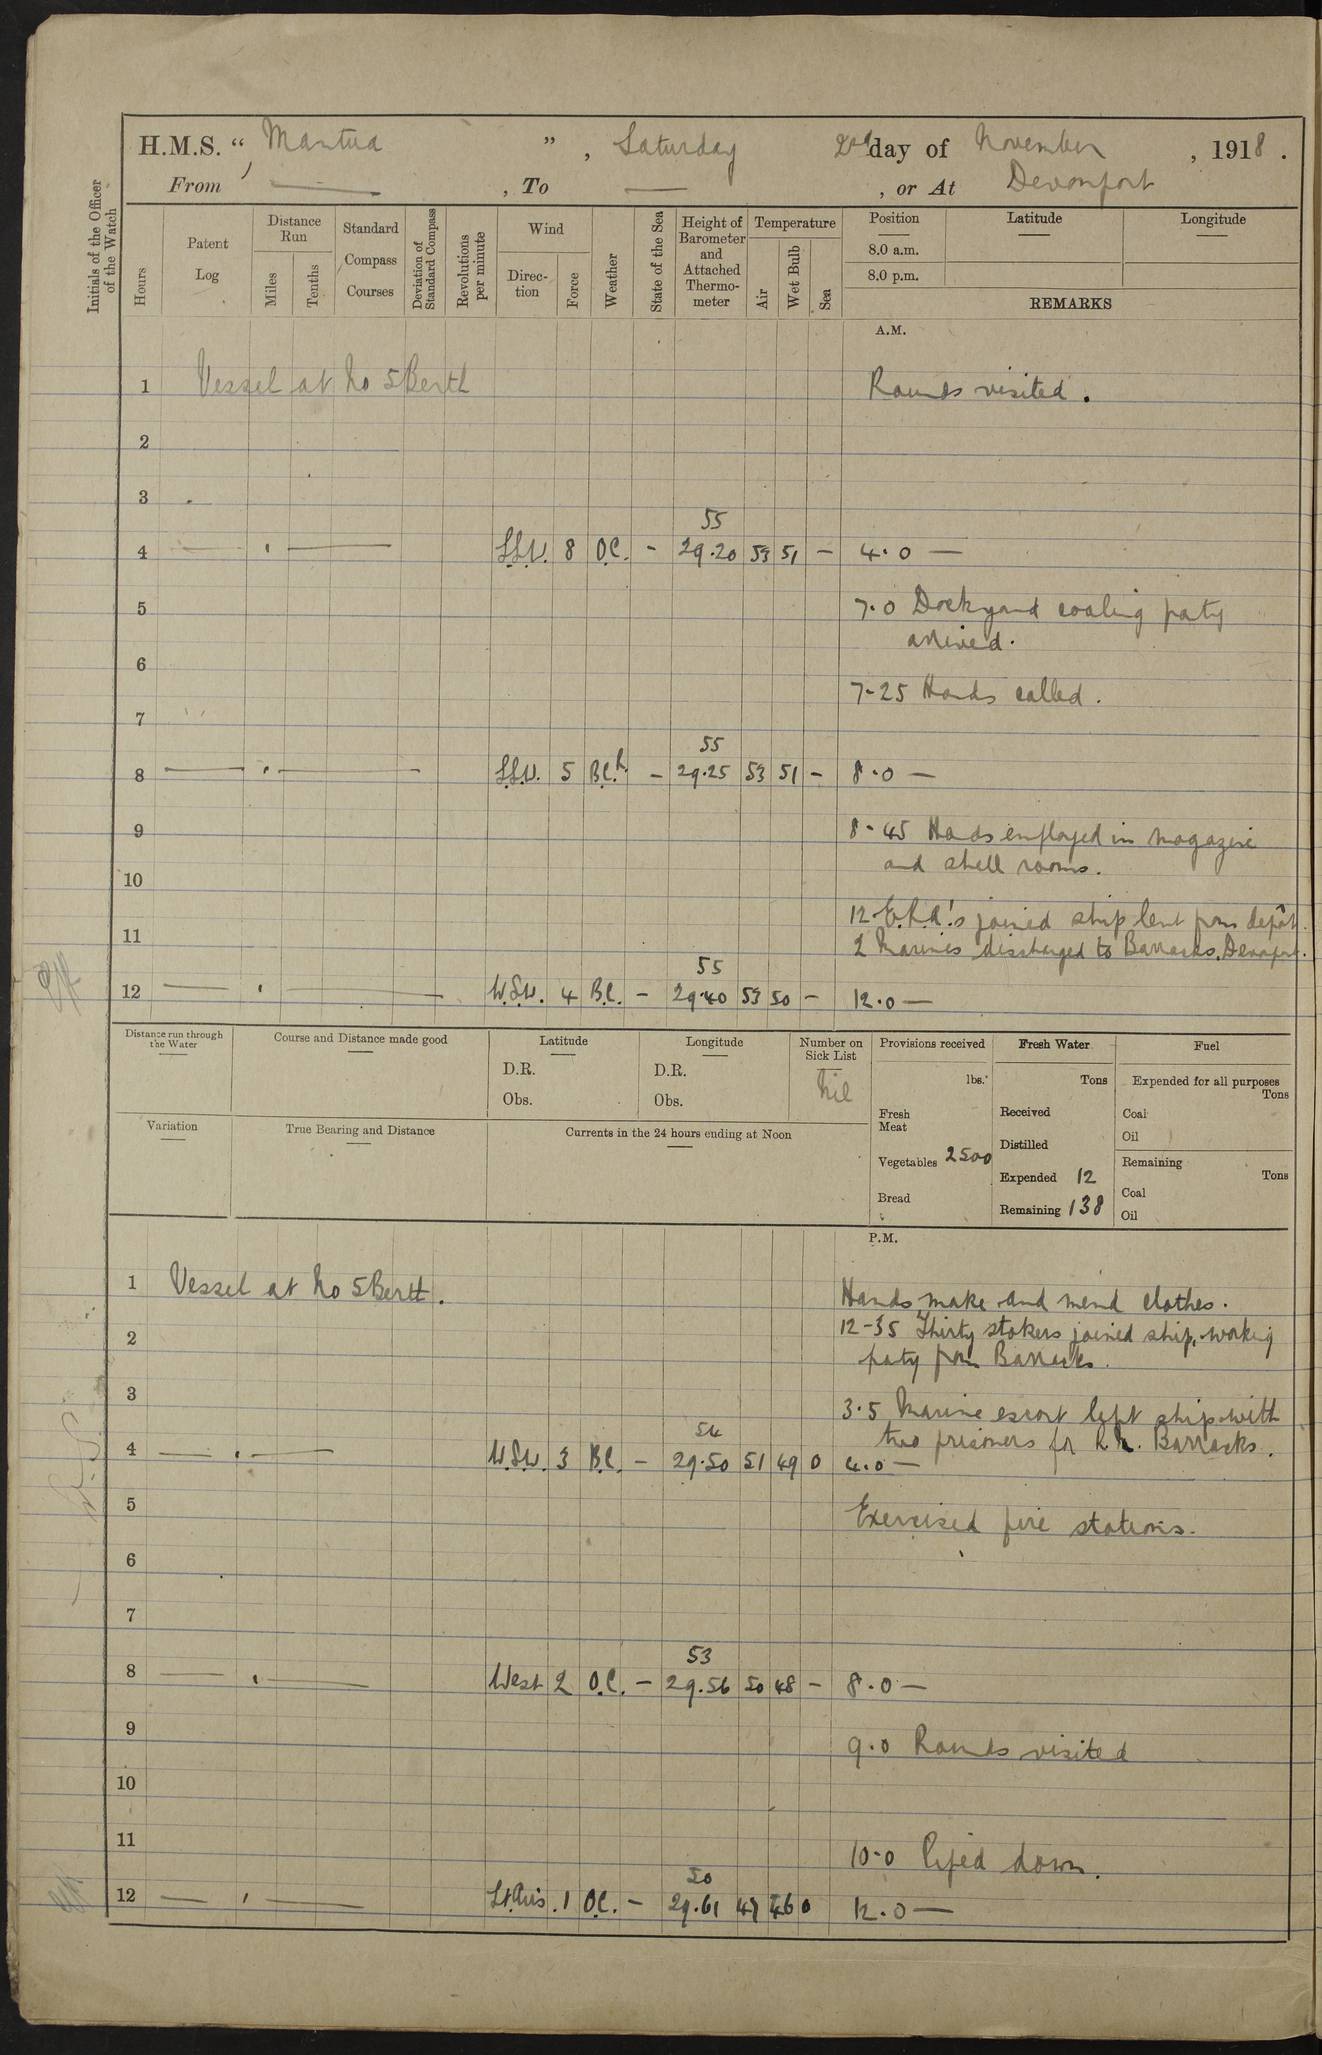 H.M.S. “ Mantua ” , Saturday 2nd day of November , 1918 .
From — , To — , or At Devonport
Initials of the Officer of the Watch
Hours
Patent Log
Distance Run
Miles
Tenths
Standard Compass Courses
Deviation of Standard Compass
Revolutions per minute
Wind
Direc-tion
Force
Weather
State of the Sea
Height of Barometer and Attached Thermo-meter
Temperature
Air
Wet Bulb
Sea
Position
Latitude
Longitude
8.0 a.m.
8.0 p.m.
REMARKS
A.M.
1 Vessel at No 5 Berth Rounds visited.
2
3
55
4 S.S.W. 8 O.C. - 29.20 53 51 - 4.0 —
5 7.0 Dockyard coaling party
arrived.
6
7-25 Hands called.
7
55
8 S.S.W. 5 B.C.R. - 29.25 53 51 - 8.0 —
9 8-45 Hands employed in magazine
and shell rooms.
10
12 E.R.A's joined ship lent from depôt.
11 2 Marines discharged to Barracks, Devonport.
55
12 W.S.W. 4 B.C. - 29.40 53 50 - 12.0 —
Distance run through the Water
Course and Distance made good
Latitude
D.R.
Obs.
Longitude
D.R.
Obs.
Number on Sick List
Nil
Variation
True Bearing and Distance
Currents in the 24 hours ending at Noon
Provisions received
lbs.
Fresh Meat
Vegetables 2500
Bread
Fresh Water
Tons
Received
Distilled
Expended 12
Remaining 138
Fuel
Expended for all purposes
Tons
Coal
Oil
Remaining
Tons
Coal
Oil
P.M.
1 Vessel at No 5 Berth. Hands make and mend clothes.
2 12-35 Thirty stokers joined ship, working
party from Barracks.
3 3.5 Marine escort left ship with
54 two prisoners for R.N. Barracks.
4 W.S.W. 3 B.C. - 29.50 51 49 0 4.0 —
5 Exercised fire stations.
6
7
53
8 West 2 O.C. - 29.56 50 48 - 8.0 —
9 9.0 Rounds visited
10
11 10.0 Piped down.
50
12 Lt Airs. 1 O.C. - 29.61 47 46 0 12.0 —